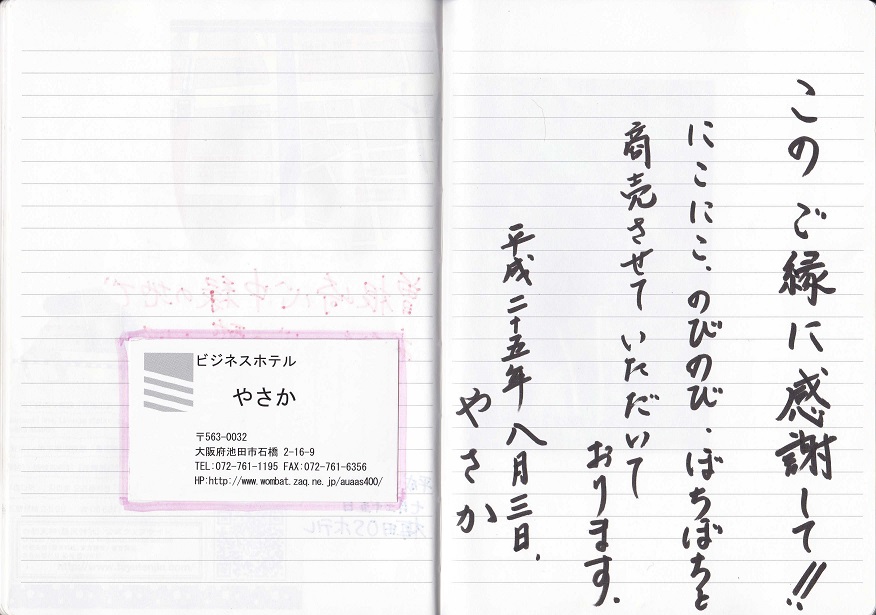 このご縁に感謝して!!
にこにこ、のびのび、ぼちぼちと
商売させていただいて
おります。
平成二十五年八月三日、
やさか
ビジネスホテル
やさか
〒563-0032
大阪府池田市石橋 2-16-9
TEL:072-761-1195 FAX:072-761-6356
HP:http://www.wombat.zaq.ne.jp/auaas400/